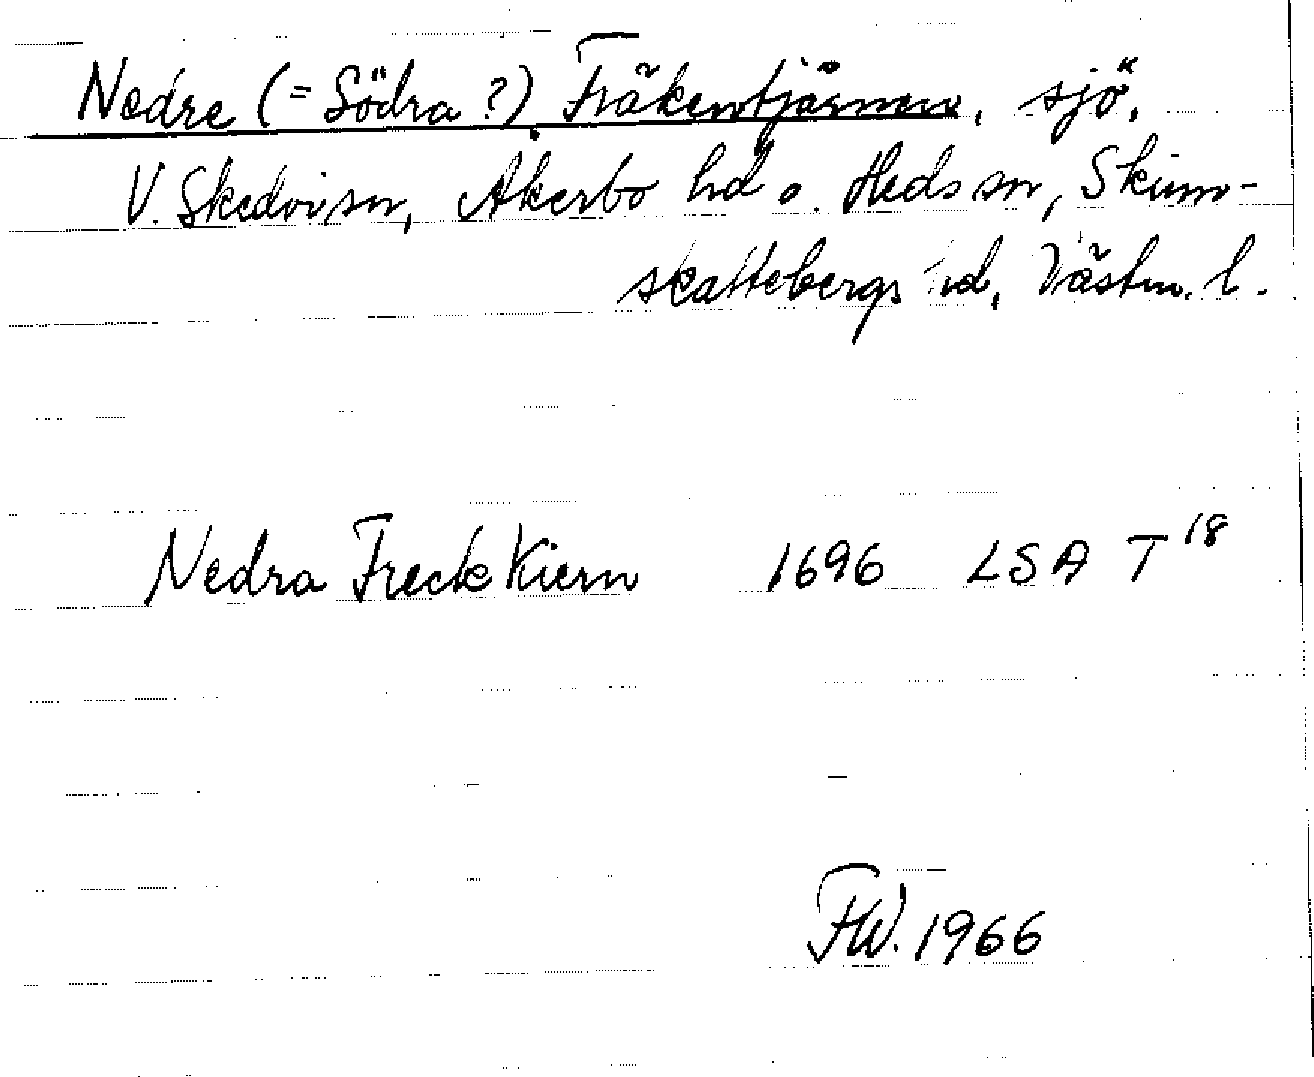 Nedre (= Södra ?) Fräkentjärnen, sjö,
V. Skedvi sn, Åkerbo hd o. Heds sn, Skinn-
skattebergs hd, Västm. l.
Nedra Freck Kiern 1696 LSA T 18
FW. 1966